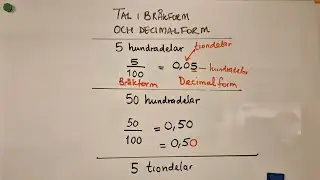 TAL I BRÅKFORM
OCH DECIMALFORM
5 hundradelar tiondelar
5/100 = 0,05 hundradelar
Bråkform Decimalform
50 hundradelar
50/100 = 0,50
= 0,50
5 tiondelar